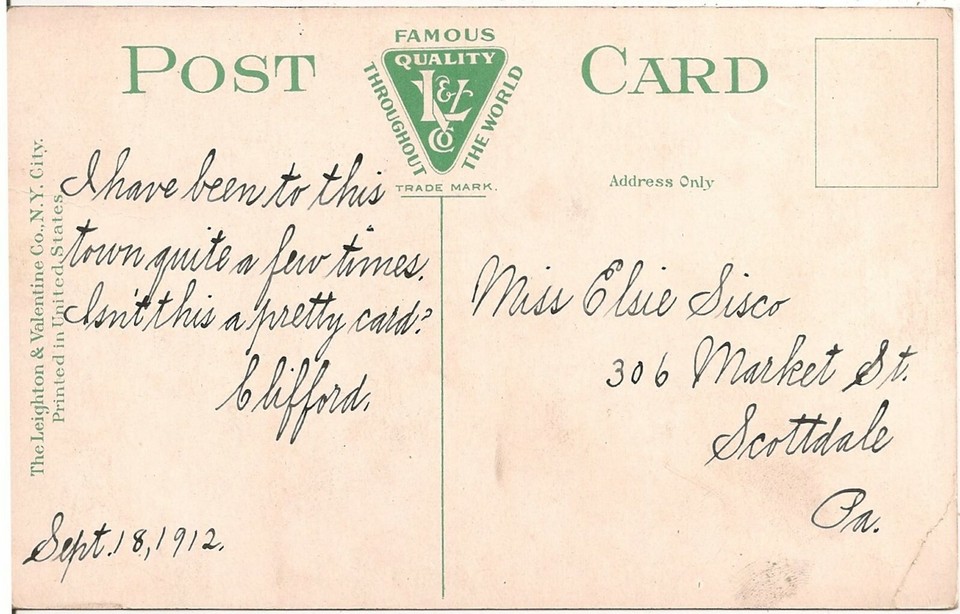 POST CARD
FAMOUS
QUALITY
THROUGHOUT
THE WORLD
L & V
Co
TRADE MARK.
Address Only
The Leighton & Valentine Co., N.Y. City.
Printed in United States.
I have been to this
town quite a few times.
Isn't this a pretty card?
Clifford.
Sept. 18, 1912.
Miss Elsie Sisco
306 Market St.
Scottdale
Pa.